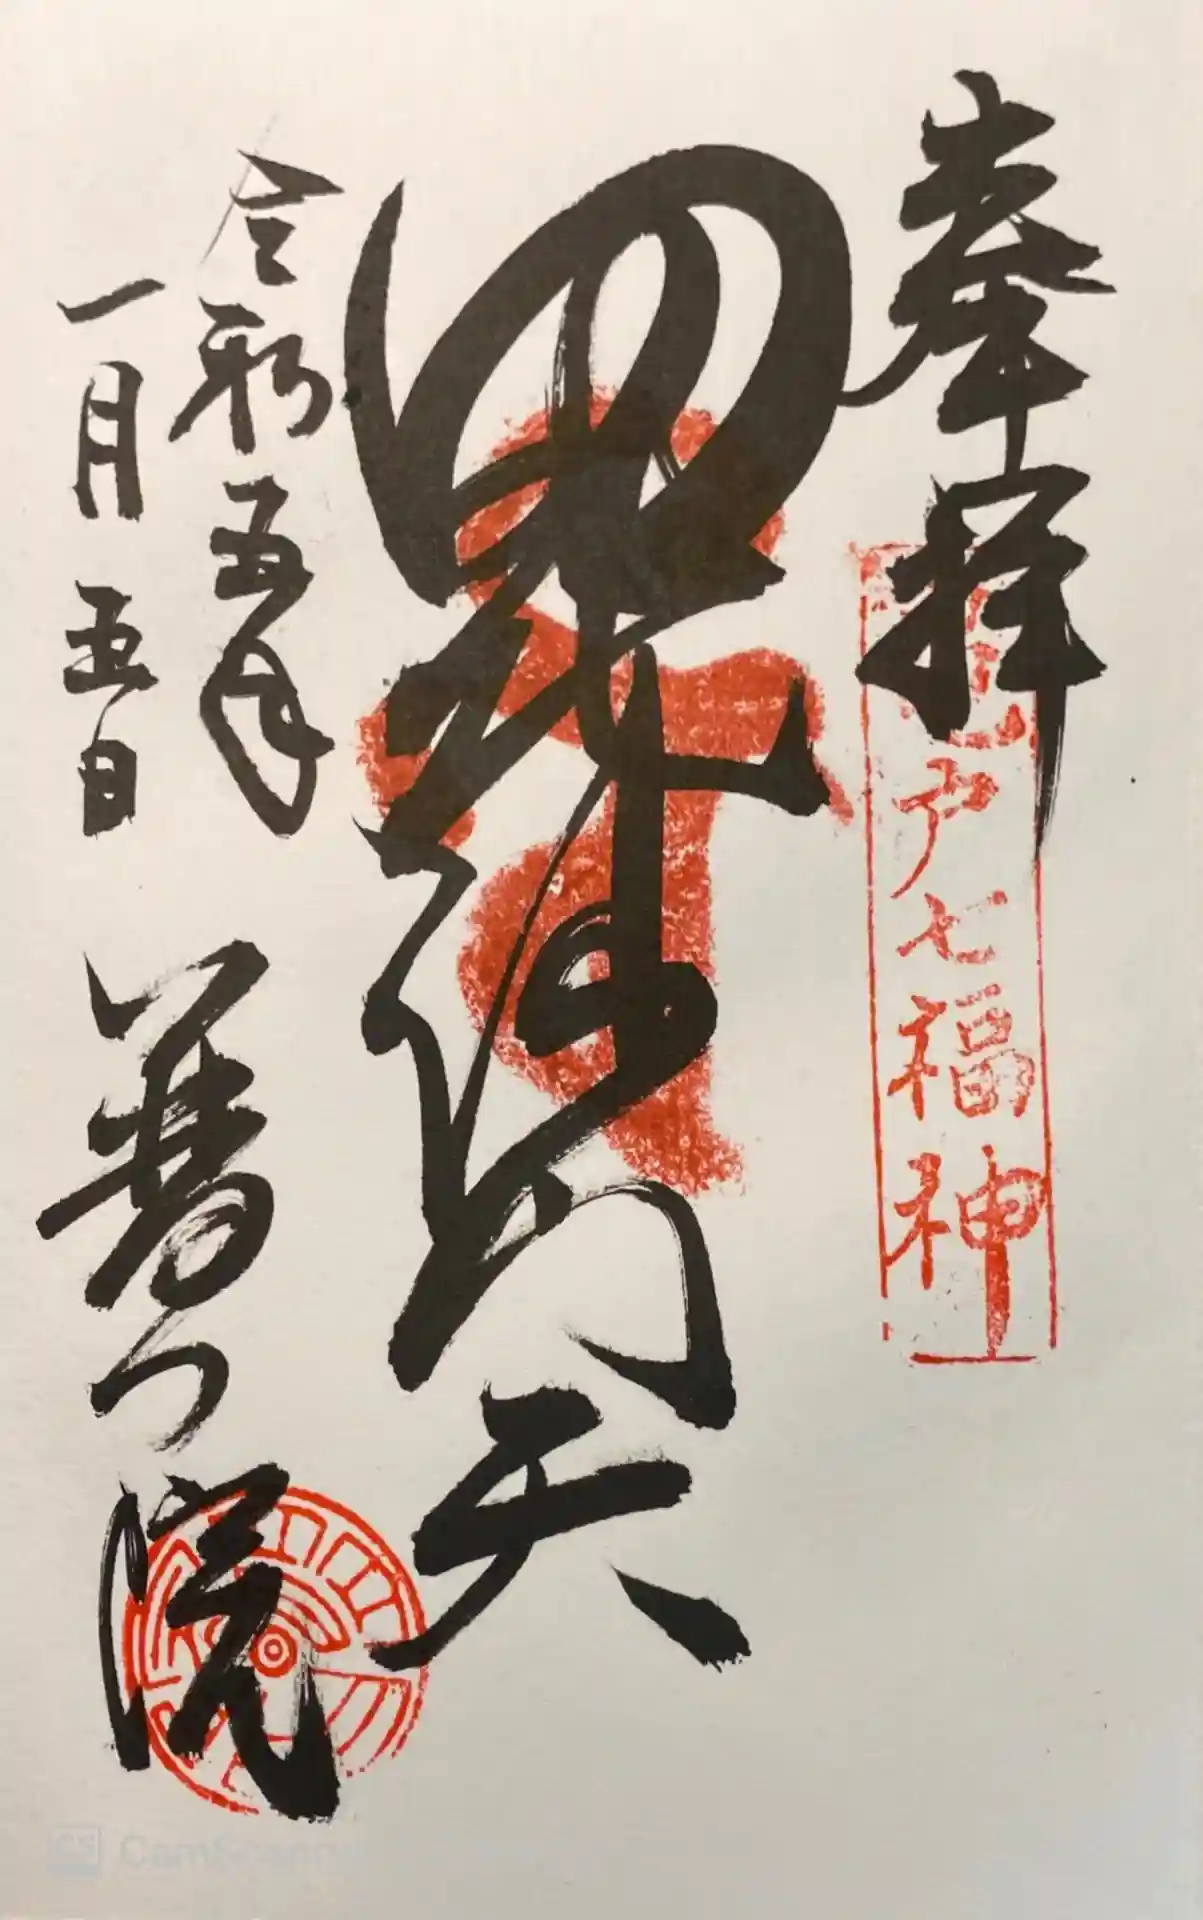 奉拝
亀戸七福神
毘沙門天
令和五年
一月五日
普門院
CS CamScanner